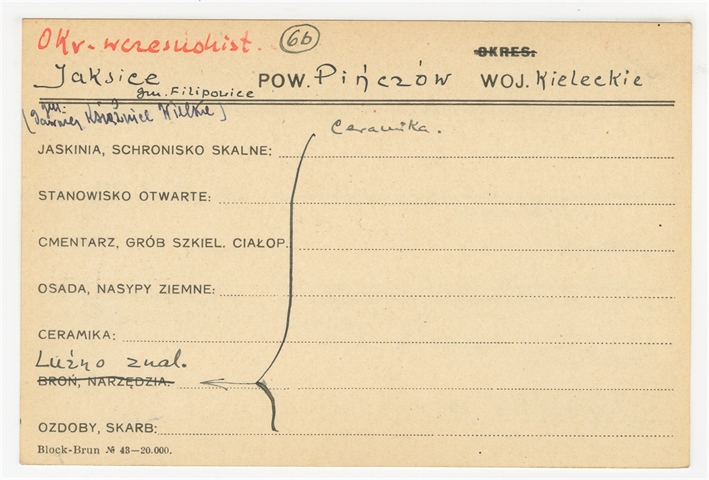 Okr. wczesnohist. 6b OKRES.
Jaksice POW. Pińczów WOJ. Kieleckie
gm. Filipowice
(gm. dawniej Książnice Wielkie)
Ceramika.
JASKINIA, SCHRONISKO SKALNE:
STANOWISKO OTWARTE:
CMENTARZ, GRÓB SZKIEL. CIAŁOP.
OSADA, NASYPY ZIEMNE:
CERAMIKA:
Luźno znal.
BROŃ, NARZĘDZIA.
OZDOBY, SKARB:
Block-Brun № 43—20.000.